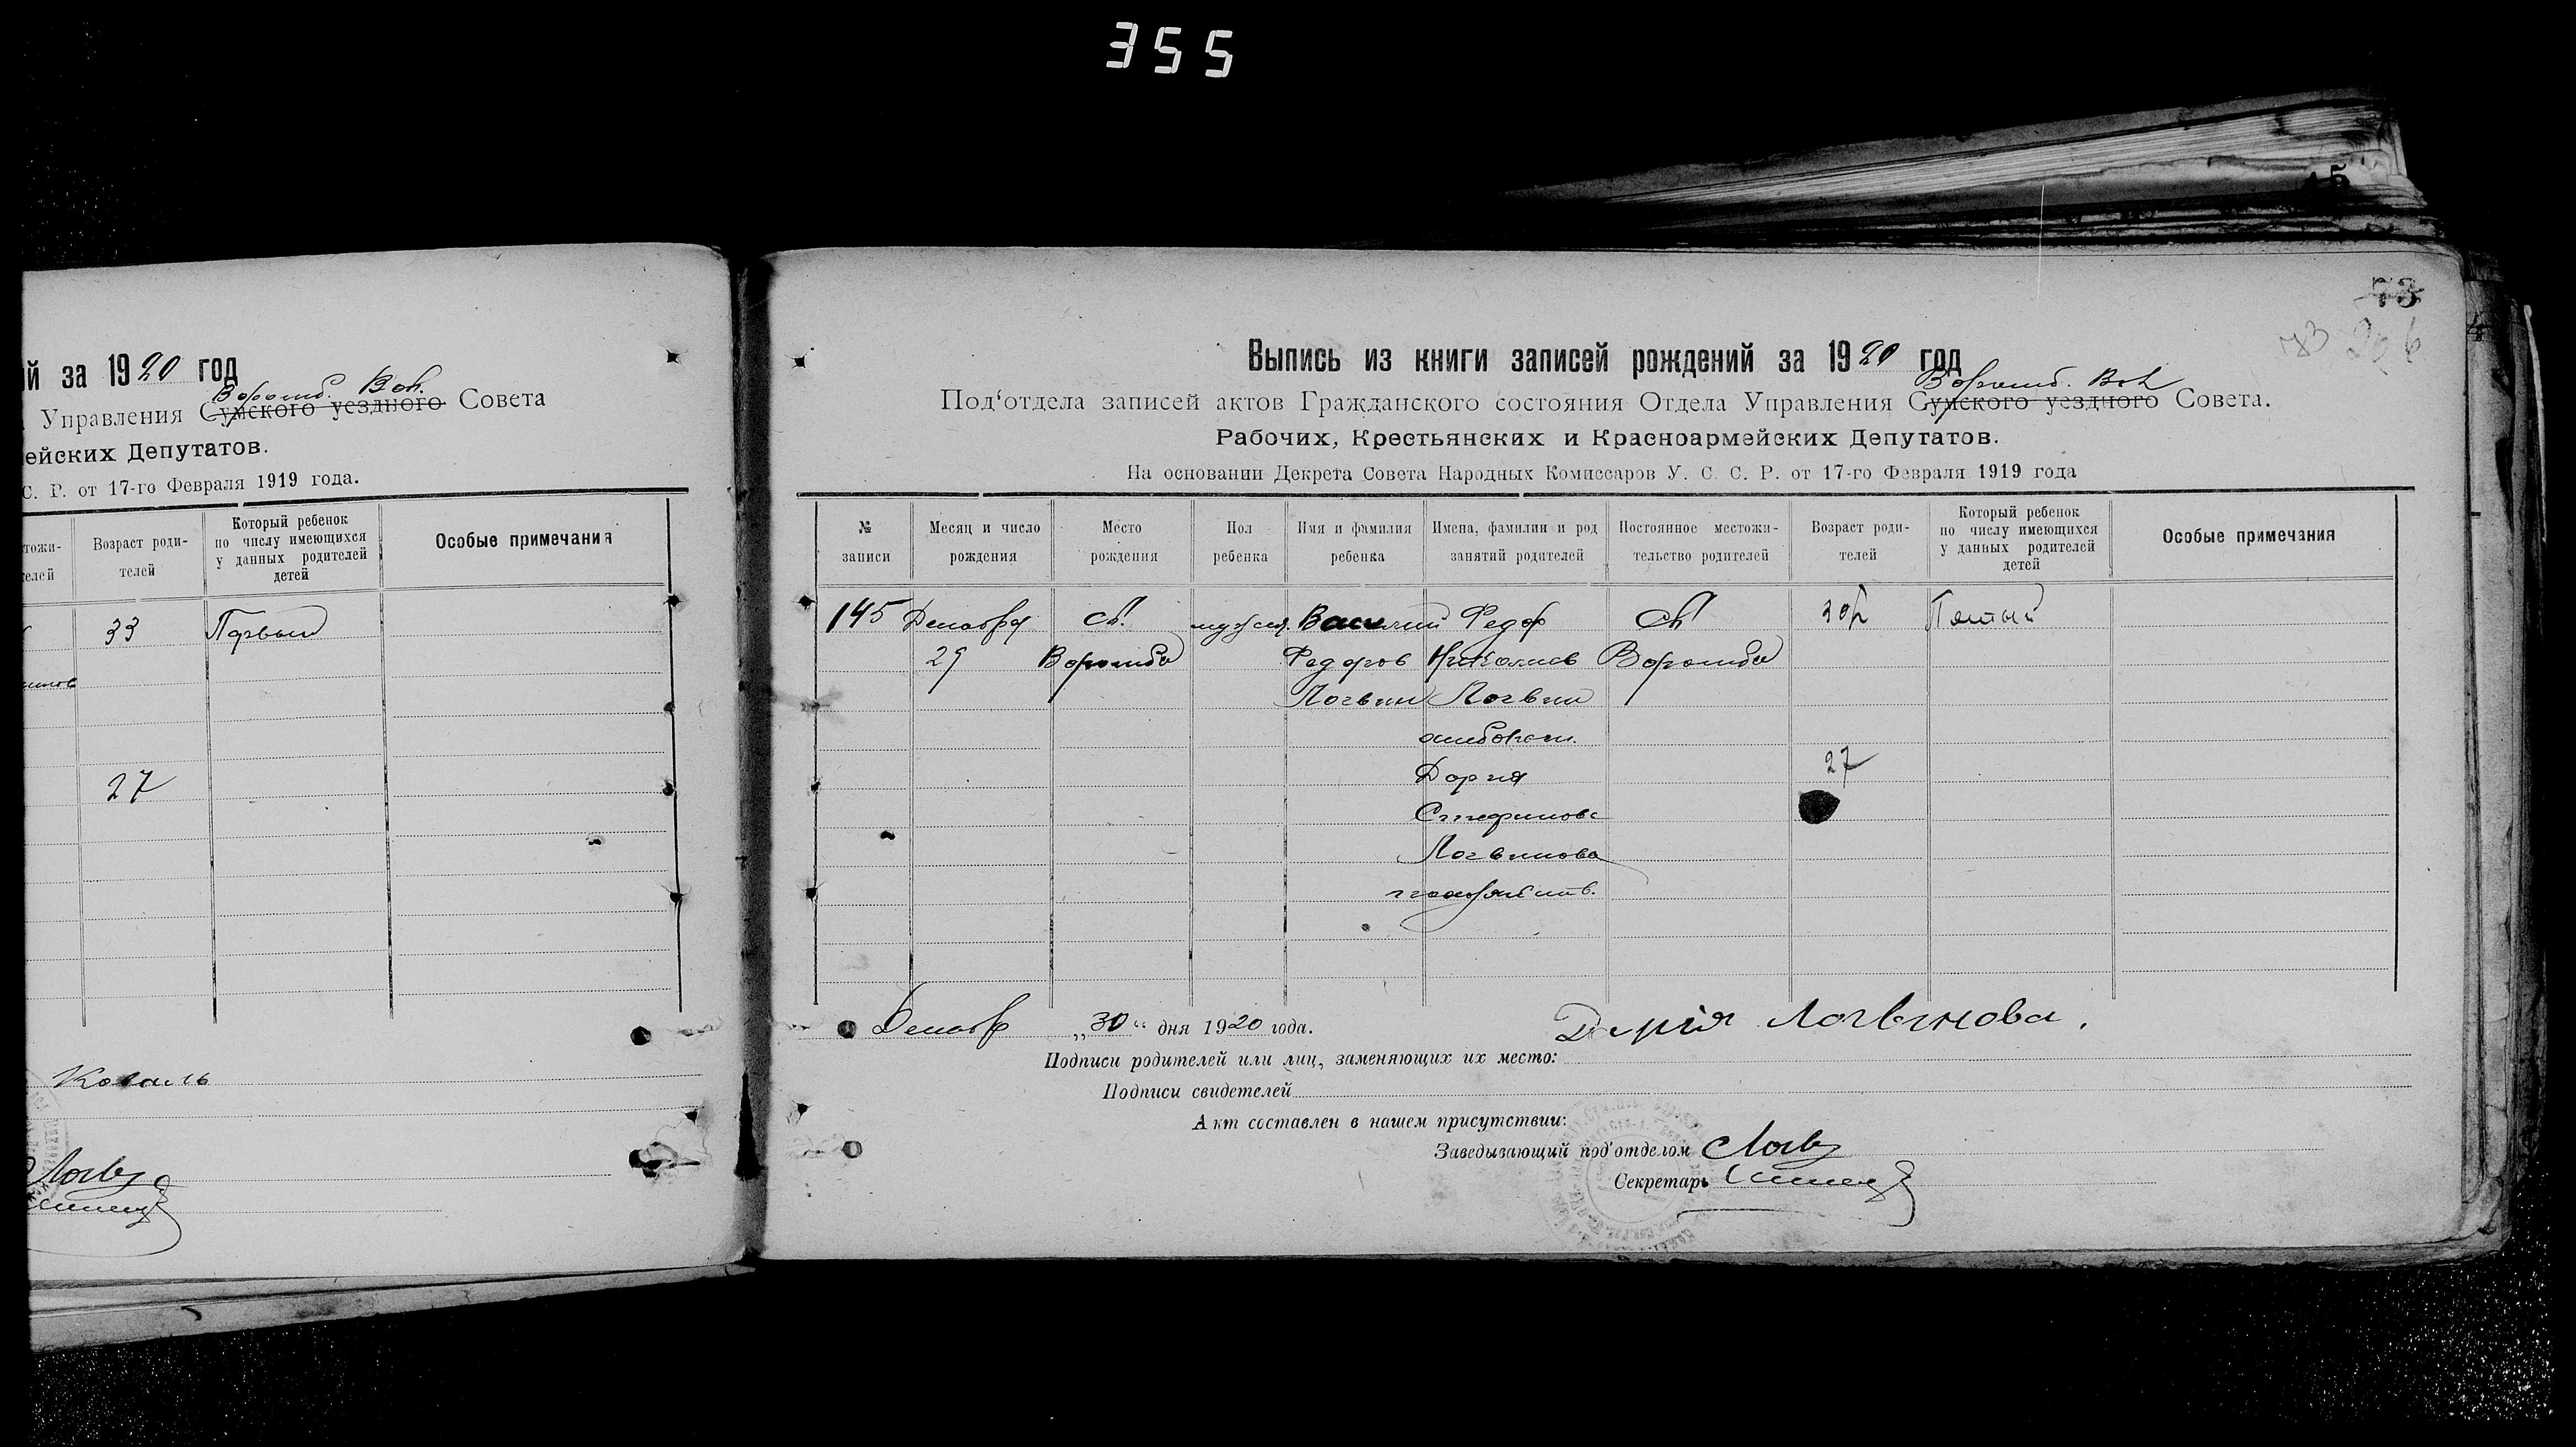 355
15
й за 1920 год
Ворожб. Вол.
Управления Сумского уездного Совета
ейских Депутатов.
С. Р. от 17-го Февраля 1919 года.
тожи-
телей
Возраст роди-
телей
Который ребенок
по числу имеющихся
у данных родителей
детей
Особые примечания
33 Первый
27
Коваль
73
Выпись из книги записей рождений за 1920 год
Ворожб. Вол
Под‘отдела записей актов Гражданского состояния Отдела Управления Сумского уездного Совета.
Рабочих, Крестьянских и Красноармейских Депутатов.
На основании Декрета Совета Народных Комиссаров У. С. С. Р. от 17-го Февраля 1919 года
№
записи
Месяц и число
рождения
Место
рождения
Пол
ребенка
Имя и фамилия
ребенка
Имена, фамилии и род
занятий родителей
Постоянное местожи-
тельство родителей
Возраст роди-
телей
Который ребенок
по числу имеющихся
у данных родителей
детей
Особые примечания
145 Декабря сл. мужск. Василий Федор сл
29 Ворожба Федоров Николаев Ворожба
Логвин Логвин
Дария
27
Стефанова
Логвинова
Декабр „30“ дня 1920 года.
Дарія Логвинова.
Подписи родителей или лиц, заменяющих их место:
Подписи свидетелей
Акт составлен в нашем присутствии:
Заведывающий под‘отделом
Секретарь